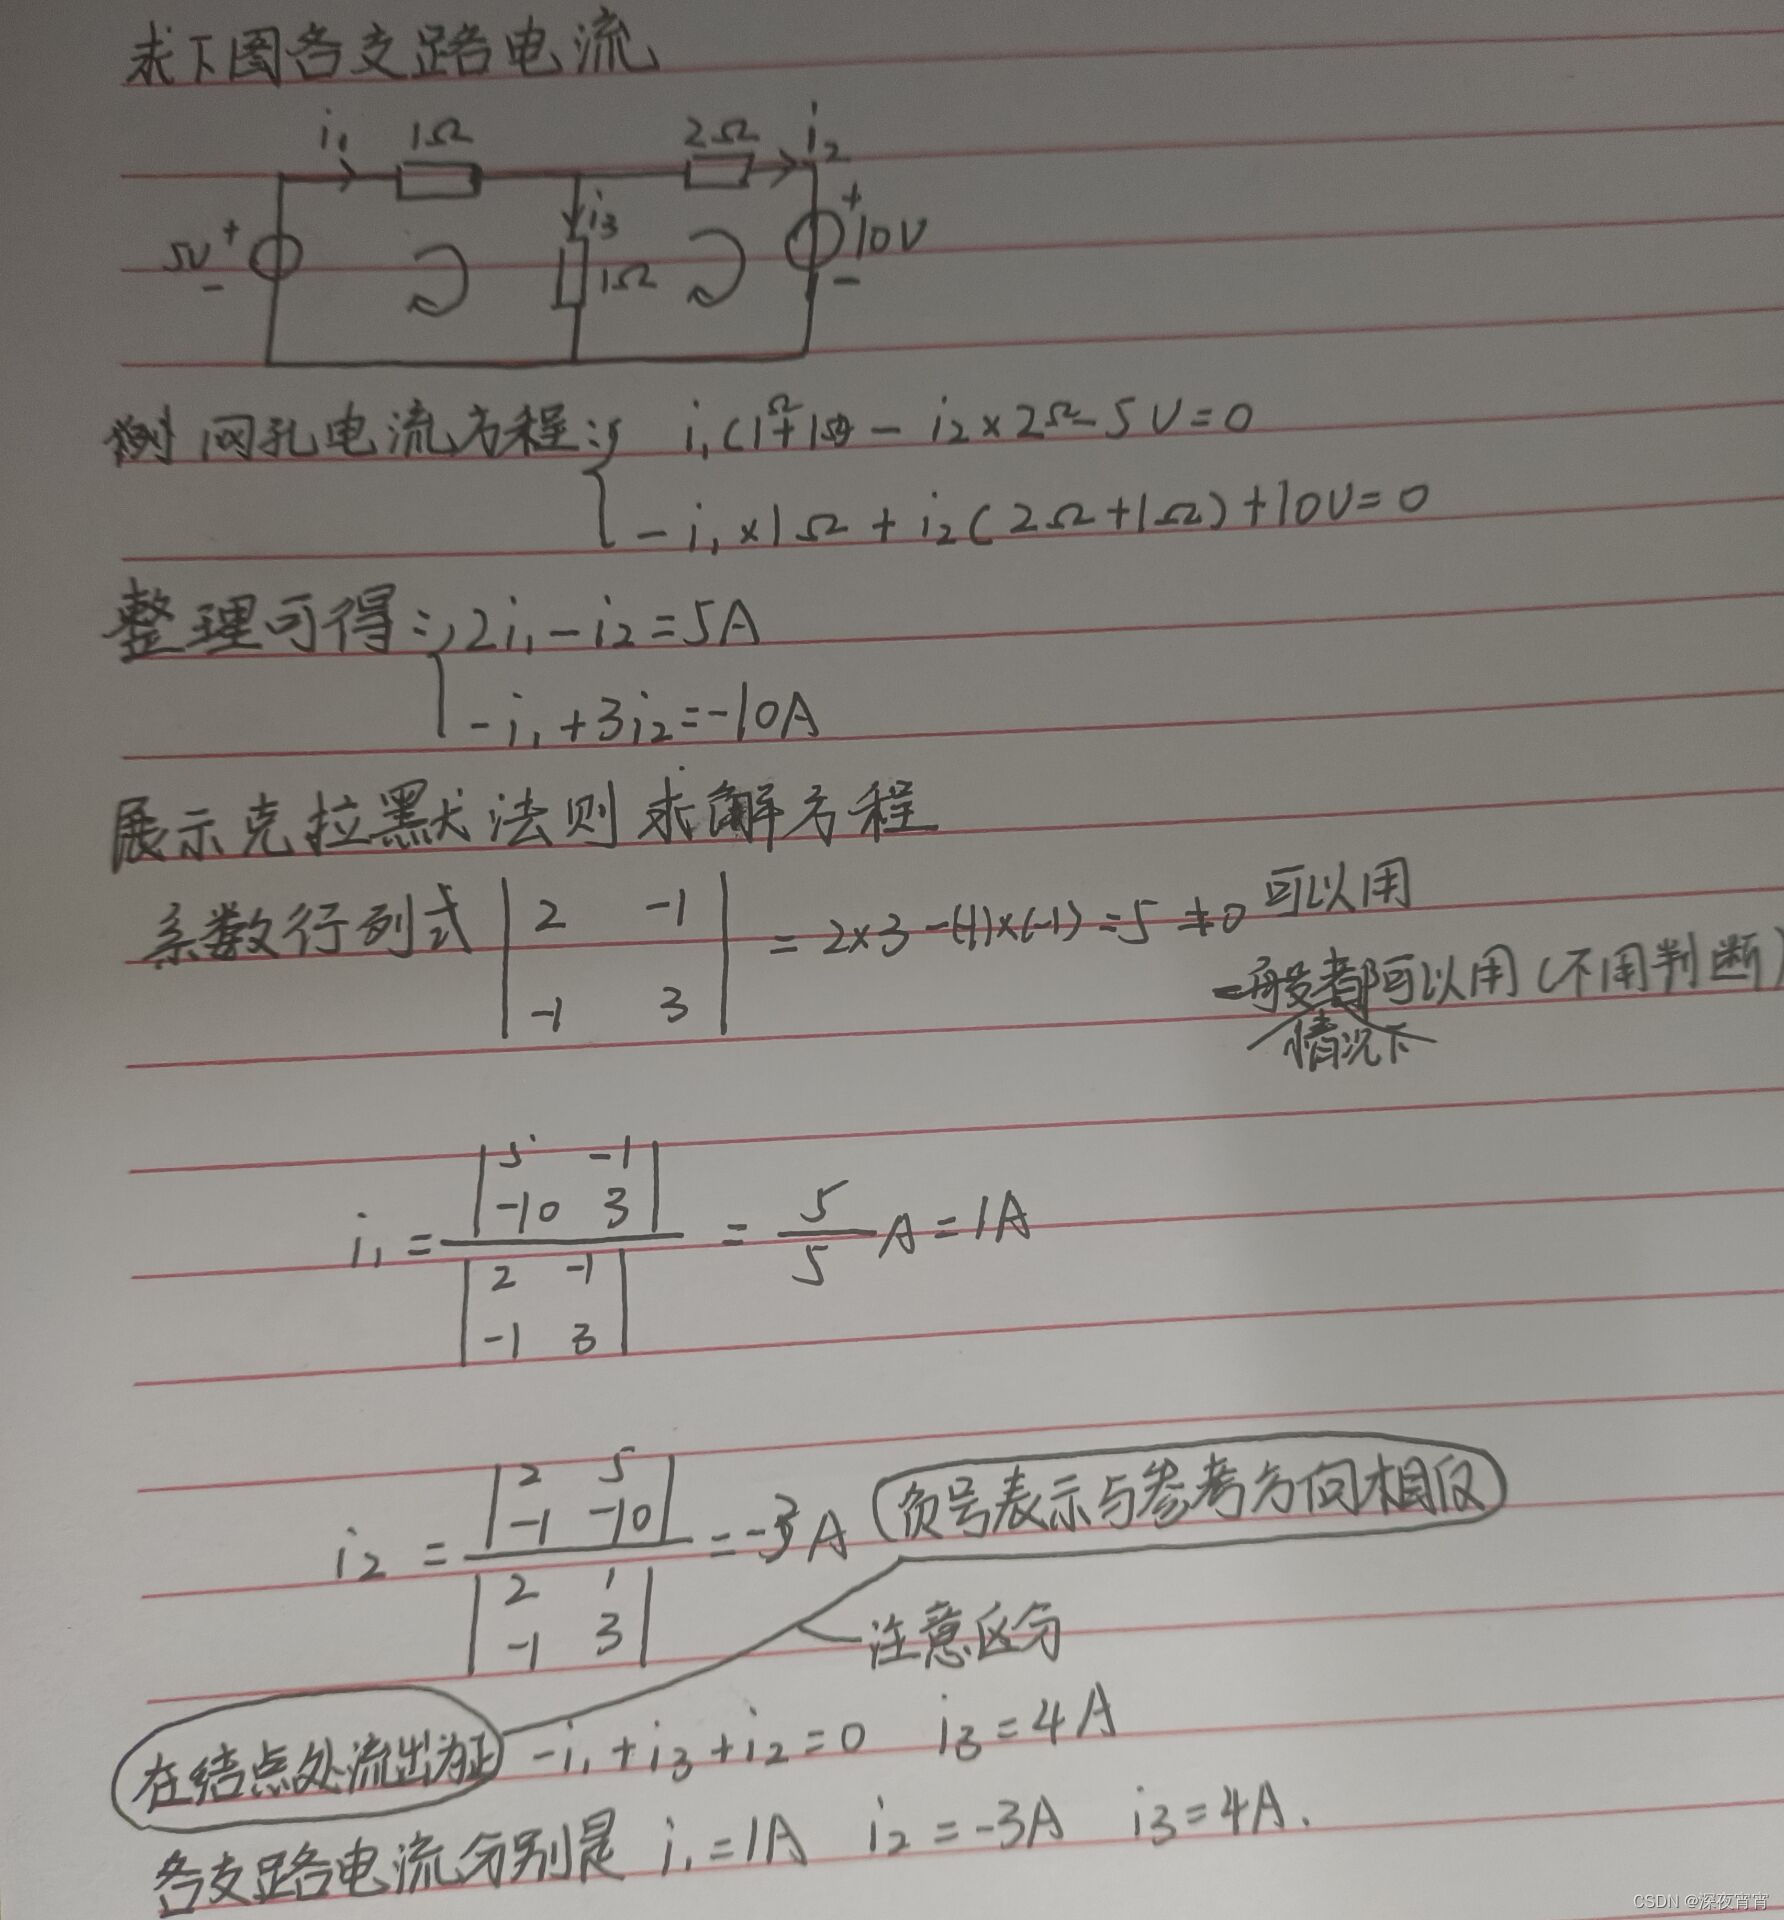 求下图各支路电流
i₁ 1Ω 2Ω i₂
5V + - i₃ 1Ω + 10V -
网孔电流方程: i₁(1Ω+1Ω) - i₂×2Ω-5V=0
-i₁×1Ω+i₂(2Ω+1Ω)+10V=0
整理可得: 2i₁-i₂=5A
-i₁+3i₂=-10A
展示克拉默法则求解方程
系数行列式 | 2 -1 | = 2×3-(-1)×(-1)=5≠0 可以用
| -1 3 | 一般都可以用(不用判断)
情况下
| 5 -1 |
| -10 3 |
i₁ = —— = 5/5 A = 1A
| 2 -1 |
| -1 3 |
| 2 5 |
| -1 -10 |
i₂ = —— = -3A (负号表示与参考方向相反)
| 2 1 |
| -1 3 |
注意区分
在结点处流出为正 -i₁+i₃+i₂=0 i₃=4A
各支路电流分别是 i₁=1A i₂=-3A i₃=4A.
CSDN @深夜宵宵